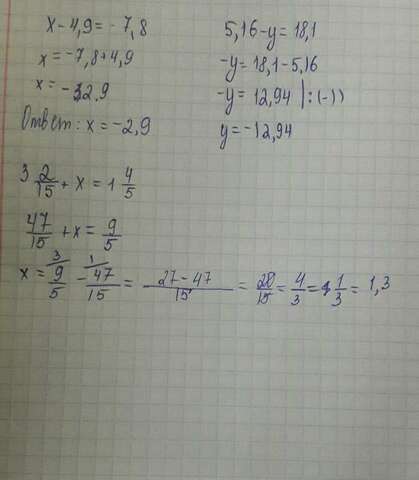 x - 4,9 = - 7,8
x = -7,8 + 4,9
x = - 2,9
Ответ: x = -2,9
5,16 - y = 18,1
-y = 18,1 - 5,16
-y = 12,94 | : (-1)
y = -12,94
3 2/15 + x = 1 4/5
47/15 + x = 9/5
x = 9/5 - 47/15 = 27 - 47/15 = 20/15 = 4/3 = 1 1/3 = 1,3